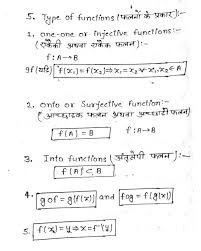 5. Type of functions (फलनों के प्रकार):-
1. one-one or injective functions:-
(एकैकी अथवा एकैक फलन) :-
f: A→B
gf(यदि) f(x₁) = f(x₂) ⇒ x₁ = x₂ ∀ x₁, x₂ ∈ A
2. onto or Surjective function:-
(आच्छादक फलन अथवा आच्छादी फलन)
f(A) = B f: A→B
3. Into functions (अंतर्क्षेपी फलन)
f(A) ⊂ B
4. gof = g{f(x)} and fog = f{g(x)}
5. f(x) = y ⇒ x = f⁻¹(y)